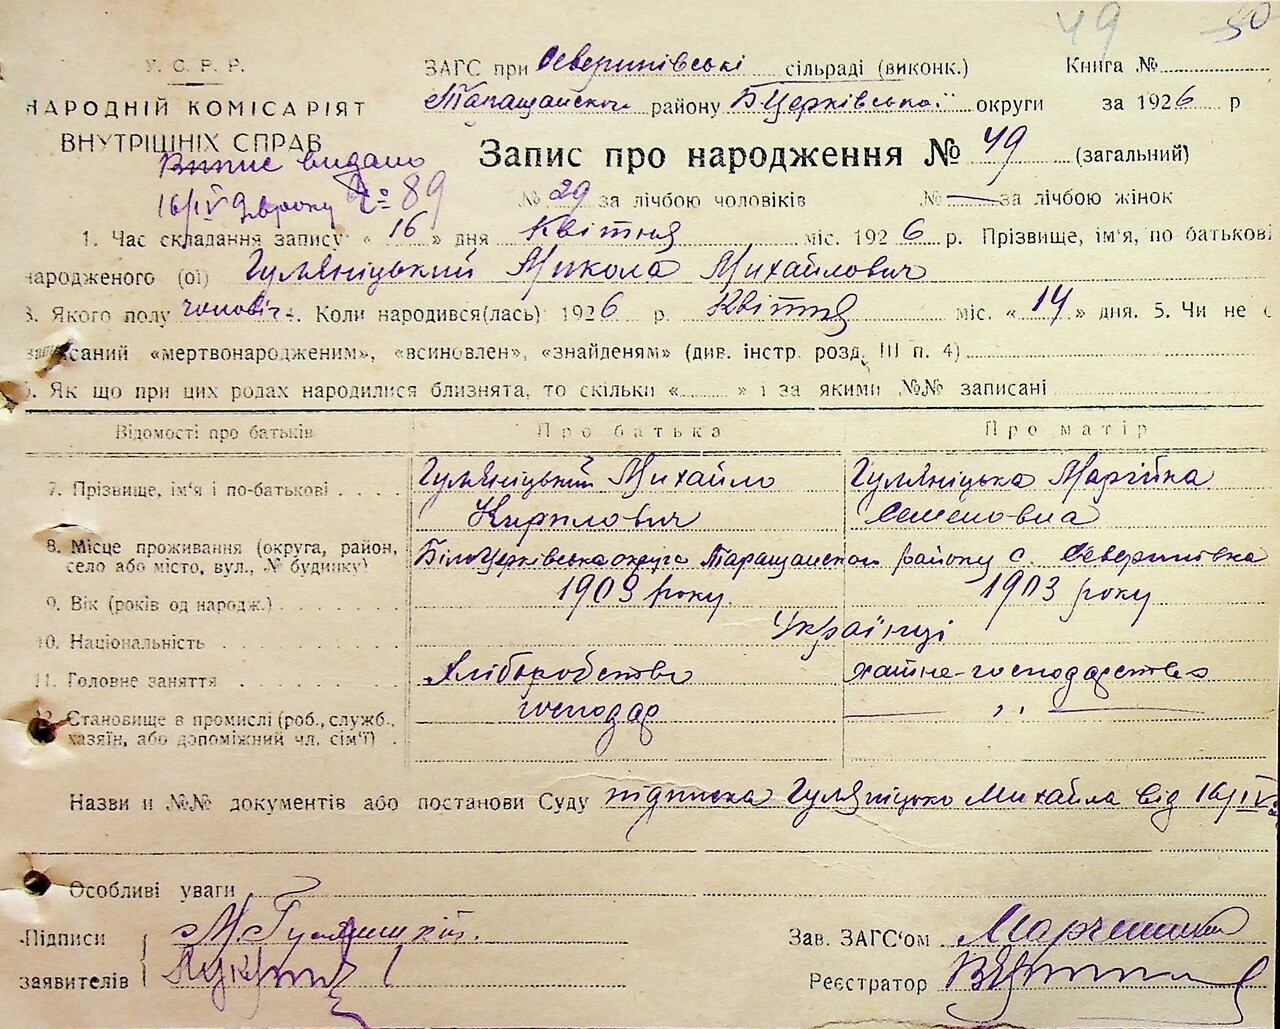 49 50
У. С. Р. Р.
НАРОДНІЙ КОМІСАРІЯТ
ВНУТРІШНІХ СПРАВ
Випис видано
16/IV 92 року № 89
ЗАГС при Северинівські сільраді (виконк.) Книга №
Таращайском району Б.Церківської округи за 1926 р
Запис про народження № 49 (загальний)
№ 29 за лічбою чоловіків № — за лічбою жінок
1. Час складання запису „ 16 » дня Квітня міс. 1926 р. Прізвище, ім'я, по батькові
народженого (ої) Гумяніцький Микола Михайлович
3. Якого полу чоловіч 4. Коли народився(лась) 1926 р. Квітня міс. « 14 » дня. 5. Чи не є
записаний «мертвонародженим», «всиновлен», «знайденям» (див. інстр. розд. III п. 4)
6. Як що при цих родах народилися близнята, то скільки « » і за якими №№ записані
Відомості про батьків Про батька Про матір
7. Прізвище, ім'я і по-батькові Гумяніцький Михайло Гумяніцька Марійка
Кирилович Семеновна
8. Місце проживання (округа, район,
село або місто, вул., № будинку) Білоцерківська округа Таращанском району с. Северинівка
9. Вік (років од народж.) 1903 року 1903 року
10. Національність Українці
11. Головне заняття Хліборобство хатнє-господарство
12. Становище в промислі (роб., служб.,
хазяїн, або допоміжний чл. сім'ї) господар — ,, —
Назви и №№ документів або постанови Суду підписка Гуляніцько Михайла від 16/IV
Особливі уваги
Підписи
заявителів
Зав. ЗАГС'ом
Реєстратор